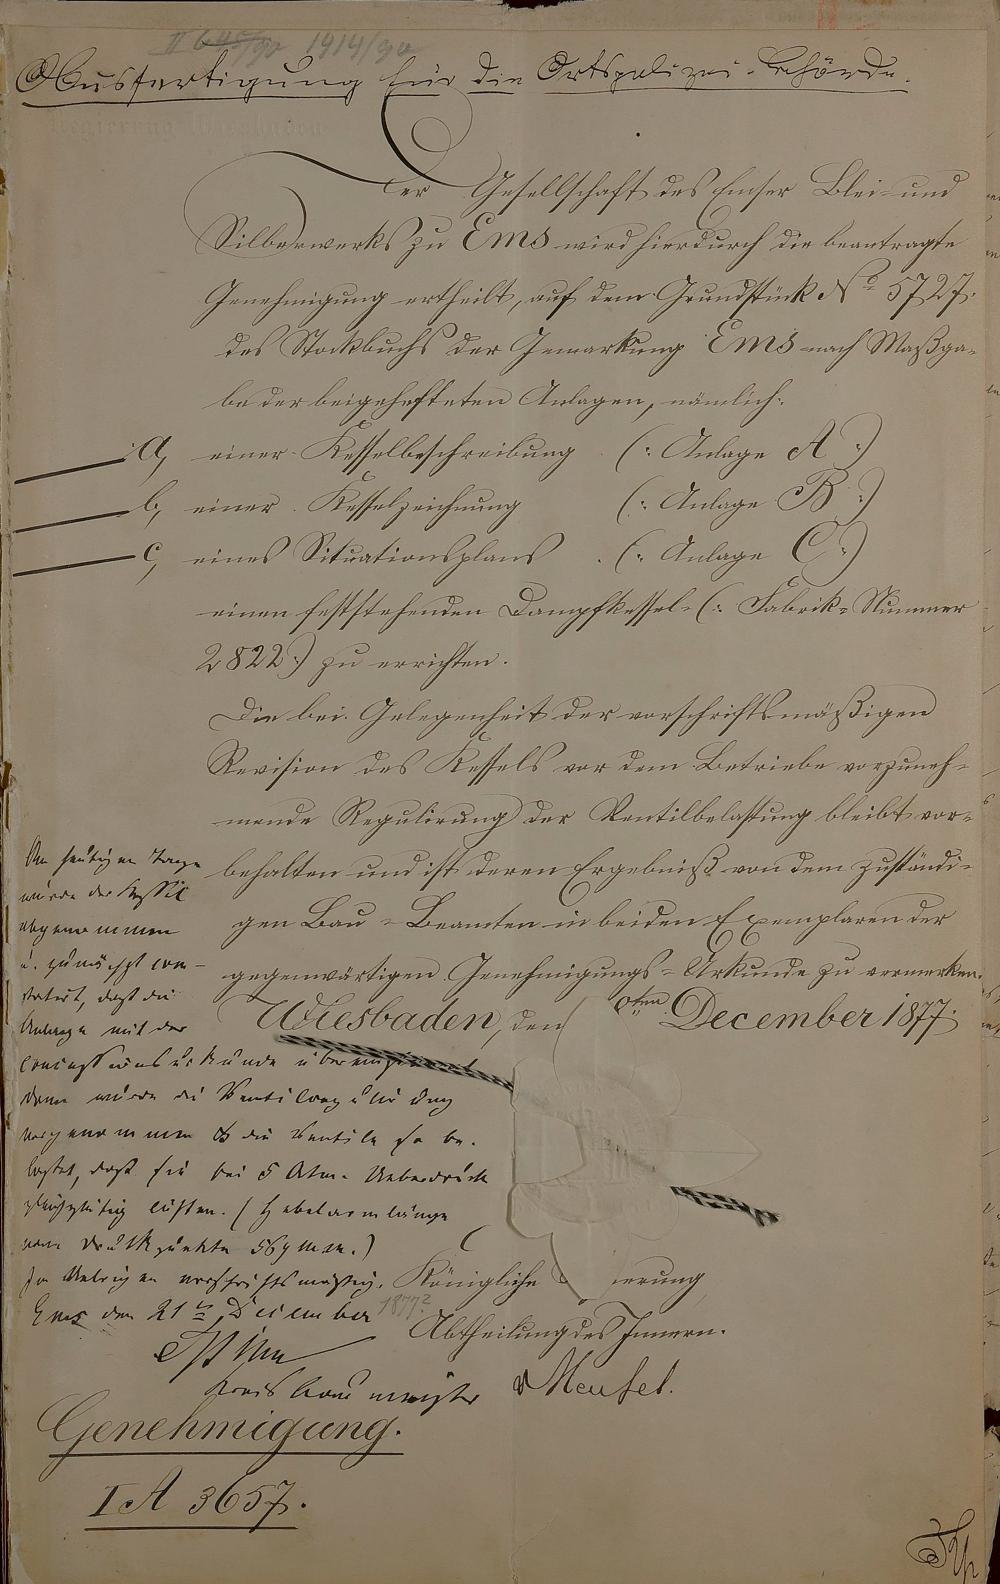 1914/90
Ausfertigung für die Ortspolizei-Behörde.
Der Gesellschaft des Emser Blei- und
Silberwerks zu Ems wird hierdurch die beantragte
Genehmigung ertheilt, auf dem Grundstück No 5727.
des Stockbuchs der Gemarkung Ems nach Maßga-
be der beigehefteten Anlagen, nämlich:
a, einer Kesselbeschreibung (: Anlage A :)
b, einer Kesselzeichnung (: Anlage B :)
c, eines Situationsplans (: Anlage C :)
einen feststehenden Dampfkessel (: Fabrik-Nummer
2822 :) zu errichten.
Die bei Gelegenheit der vorschriftsmäßigen
Revision des Kessels vor dem Betriebe vorzuneh-
mende Regulirung der Ventilbelastung bleibt vor-
behalten und ist deren Ergebniß von dem zuständi-
gen Bau-Beamten in beiden Exemplaren der
gegenwärtigen Genehmigungs-Urkunde zu vermerken.
Wiesbaden, den ten December 1877.
Königliche ierung
Abtheilung des Innern.
Am heutigen Tage
wurde der Kessel
abgenommen
u. zunächst con-
statirt, daß die
Anlage mit der
Concessionsurkunde übereinstimmt
dann wurde die Ventilregulirung
vorgenommen & die Ventile so be-
lastet, daß sie bei 5 Atm. Ueberdruck
gleichzeitig lüften. (Hebelarmlänge
vom Druckpunkte 569 mm.)
Im Uebrigen vorschriftsmäßig.
Ems den 21ten December 1877
Kreisbaumeister
Meusel.
Genehmigung.
I A 3657.